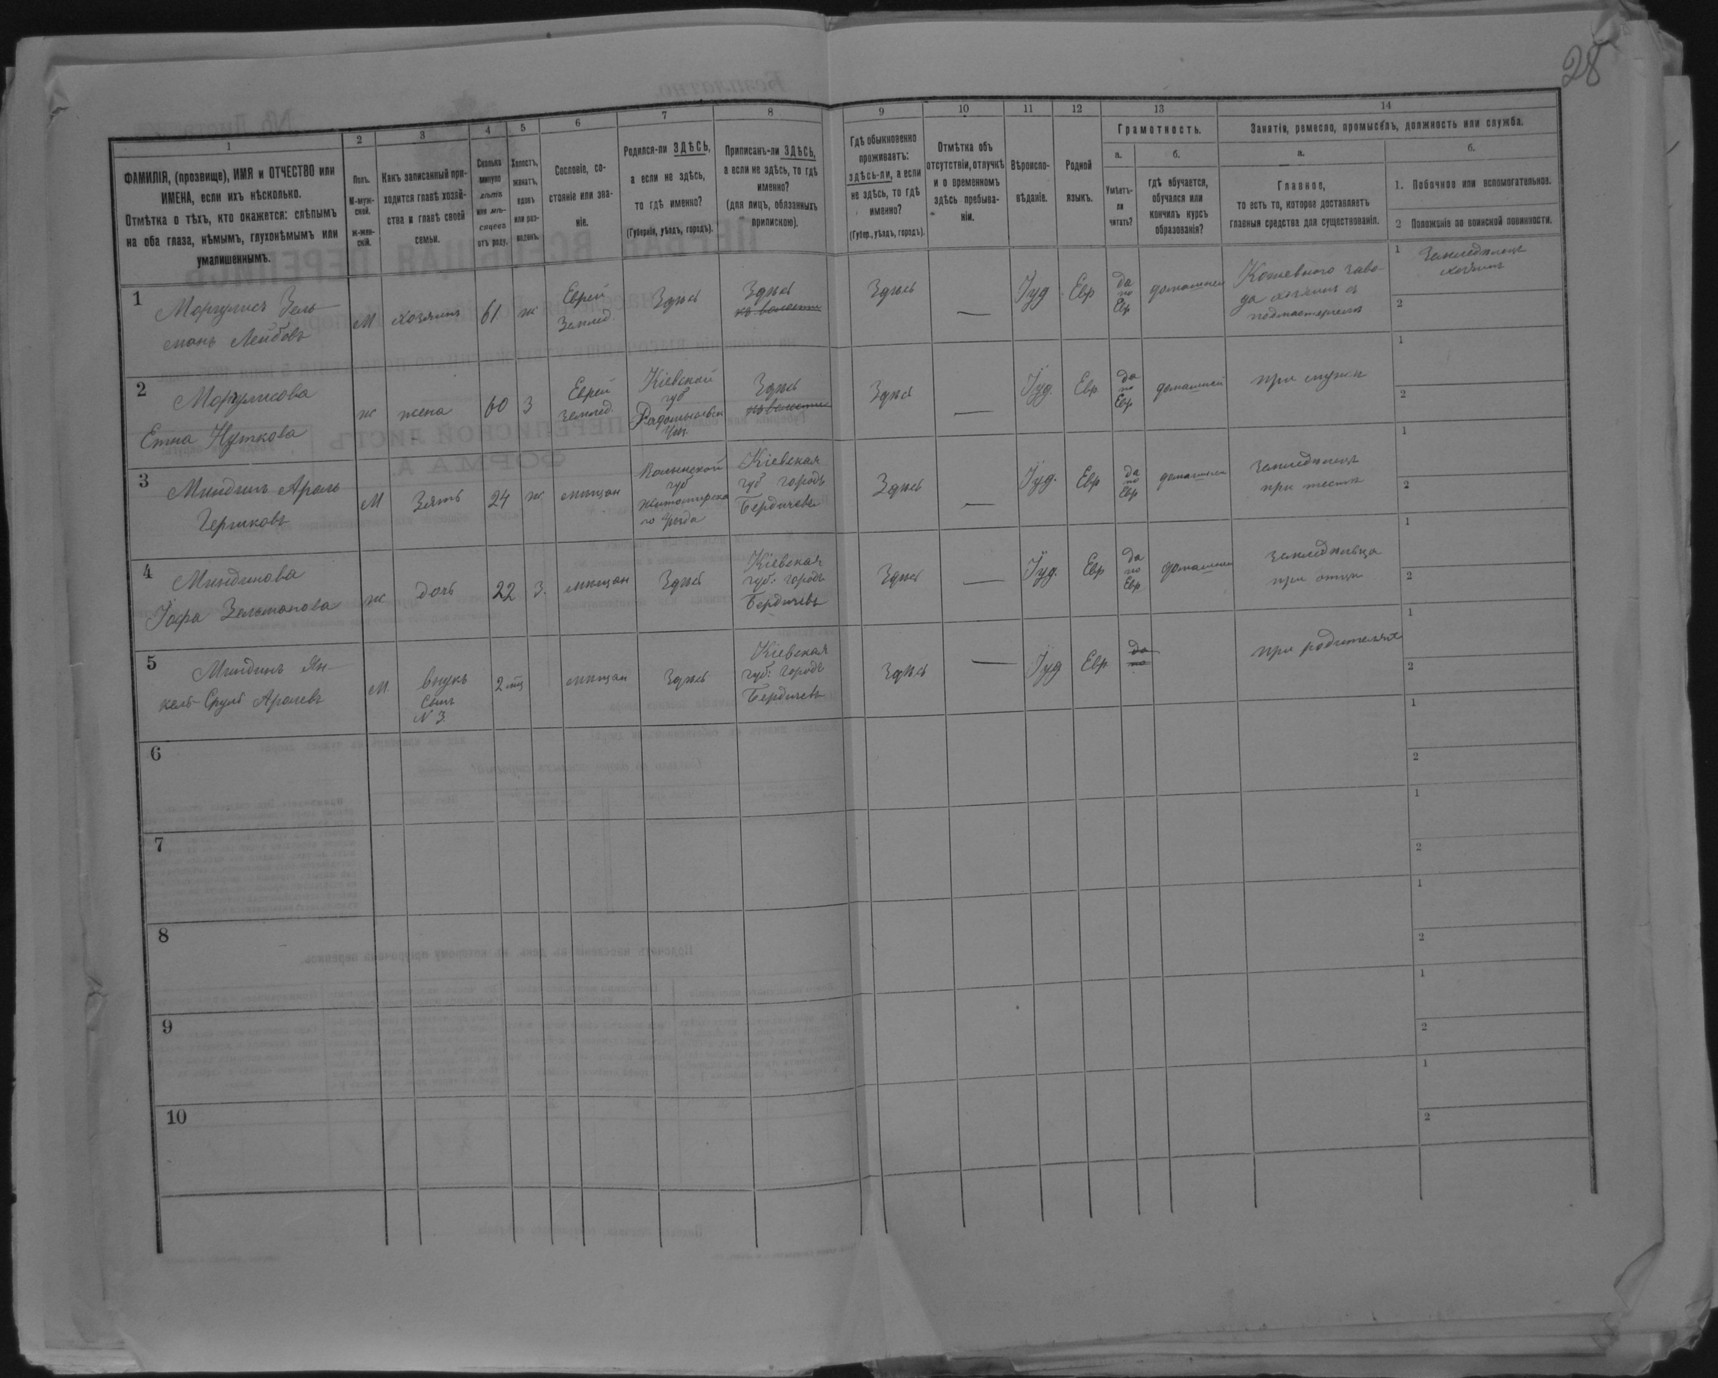 28
1
ФАМИЛІЯ, (прозвище), ИМЯ и ОТЧЕСТВО или
ИМЕНА, если ихъ нѣсколько.
Отмѣтка о тѣхъ, кто окажется: слѣпымъ
на оба глаза, нѣмымъ, глухонѣмымъ или
умалишеннымъ.
2
Полъ.
М-муж-
ской.
ж-жен-
скій.
3
Какъ записанный при-
ходится главѣ хозяй-
ства и главѣ своей
семьи.
4
Сколько
минуло
лѣтъ
или мѣ-
сяцевъ
отъ роду.
5
Холостъ,
женатъ,
вдовъ
или раз-
веденъ.
6
Сословіе, со-
стояніе или зва-
ніе.
7
Родился-ли ЗДѢСЬ,
а если не здѣсь,
то гдѣ именно?
(Губернія, уѣздъ, городъ).
8
Приписанъ-ли ЗДѢСЬ,
а если не здѣсь, то гдѣ
именно?
(для лицъ, обязанныхъ
припискою).
9
Гдѣ обыкновенно
проживаетъ:
здѣсь-ли, а если
не здѣсь, то гдѣ
именно?
(Губер., уѣздъ, городъ).
10
Отмѣтка объ
отсутствіи, отлучкѣ
и о временномъ
здѣсь пребыва-
ніи.
11
Вѣроиспо-
вѣданіе.
12
Родной
языкъ.
13
Грамотность.
а.
Умѣетъ-
ли
читать?
б.
гдѣ обучается,
обучался или
кончилъ курсъ
образованія?
14
Занятія, ремесло, промыселъ, должность или служба.
а.
Главное,
то есть то, которое доставляетъ
главныя средства для существованія.
б.
1. Побочное или вспомогательное.
2 Положеніе по воинской повинности.
1
Моргулисъ Зель-
манъ Лейбовъ
М
хозяинъ
61
ж
Еврей
Землед.
Здѣсь
Здѣсь
Здѣсь
—
Іуд
Евр
да
по
Евр
домашнее
Кожевного заво-
да хозяинъ съ
подмастерьемъ
1 Земледѣлецъ
хозяинъ
2
2
Моргулисова
Етна Нуткова
ж
жена
60
З
Еврей
Землед.
Кіевской
губ
Радомысльск
уѣз.
Здѣсь
Здѣсь
—
Іуд.
Евр
да
по
Евр
домашней
при мужѣ
1
2
3
Миндинъ Аронъ
Гершковъ
М
Зять
24
ж
мѣщан
Волынской
губ
Житомирска-
го уѣзда
Кіевская
губ городъ
Бердичевъ
Здѣсь
—
Іуд.
Евр
да
по
Евр
домашнее
Земледѣлецъ
при тестѣ
1
2
4
Миндинова
Зельманова
ж
дочь
22
З.
мѣщан
Здѣсь
Кіевская
губ: городъ
Бердичевъ
Здѣсь
—
Іуд.
Евр
да
по
Евр
домашнее
земледѣлица
при отцѣ
1
2
5
Миндинъ Ян-
кель-Сруль Ароновъ
М.
внукъ
Сынъ
N 3
2 мц
мѣщан
Здѣсь
Кіевская
губ: городъ
Бердичевъ
Здѣсь
—
Іуд
Евр
да
по
при родителяхъ
1
2
6
1
2
7
1
2
8
1
2
9
1
2
10
1
2